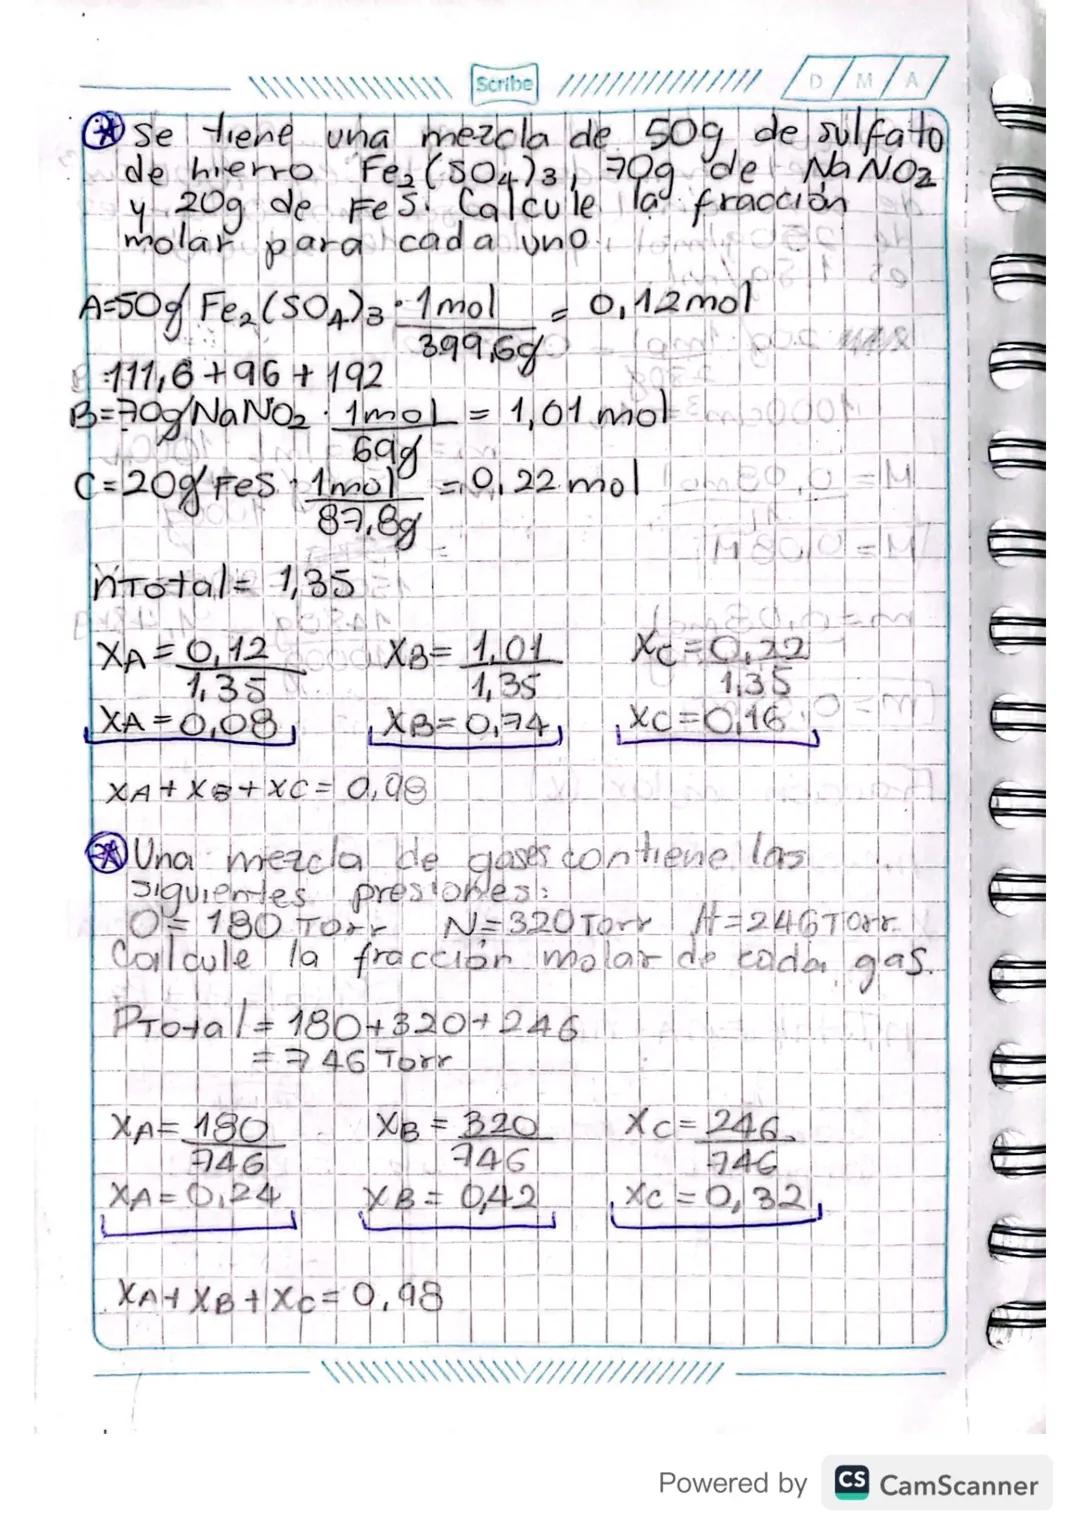 Scribe D M A
Se tiene una mezcla de 50g de sulfato
de hierro Fe₂(SO₄)₃, 70g de NaNO₂
y 20g de FeS. Calcule la fracción
molar para cada uno.
A=50g Fe₂(SO₄)₃ · 1mol = 0,12mol
399,6g
111,6+96+192
B=70g NaNO₂ · 1mol = 1,01 mol
69g
C=20g FeS · 1mol = 0,22 mol
87,8g
nTotal= 1,35
XA=0,12 XB=1,01 XC=0,22
1,35 1,35 1,35
XA=0,08 XB=0,74 XC=0,16
XA+XB+XC=0,98
Una mezcla de gases contiene las
siguientes presiones:
O=180 Torr N=320Torr H=246Torr.
Calcule la fracción molar de cada gas.
PTotal=180+320+246
=746 Torr
XA=180 XB=320 XC=246
746 746 746
XA=0,24 XB=0,42 XC=0,32
XA+XB+XC=0,98
Powered by CS CamScanner